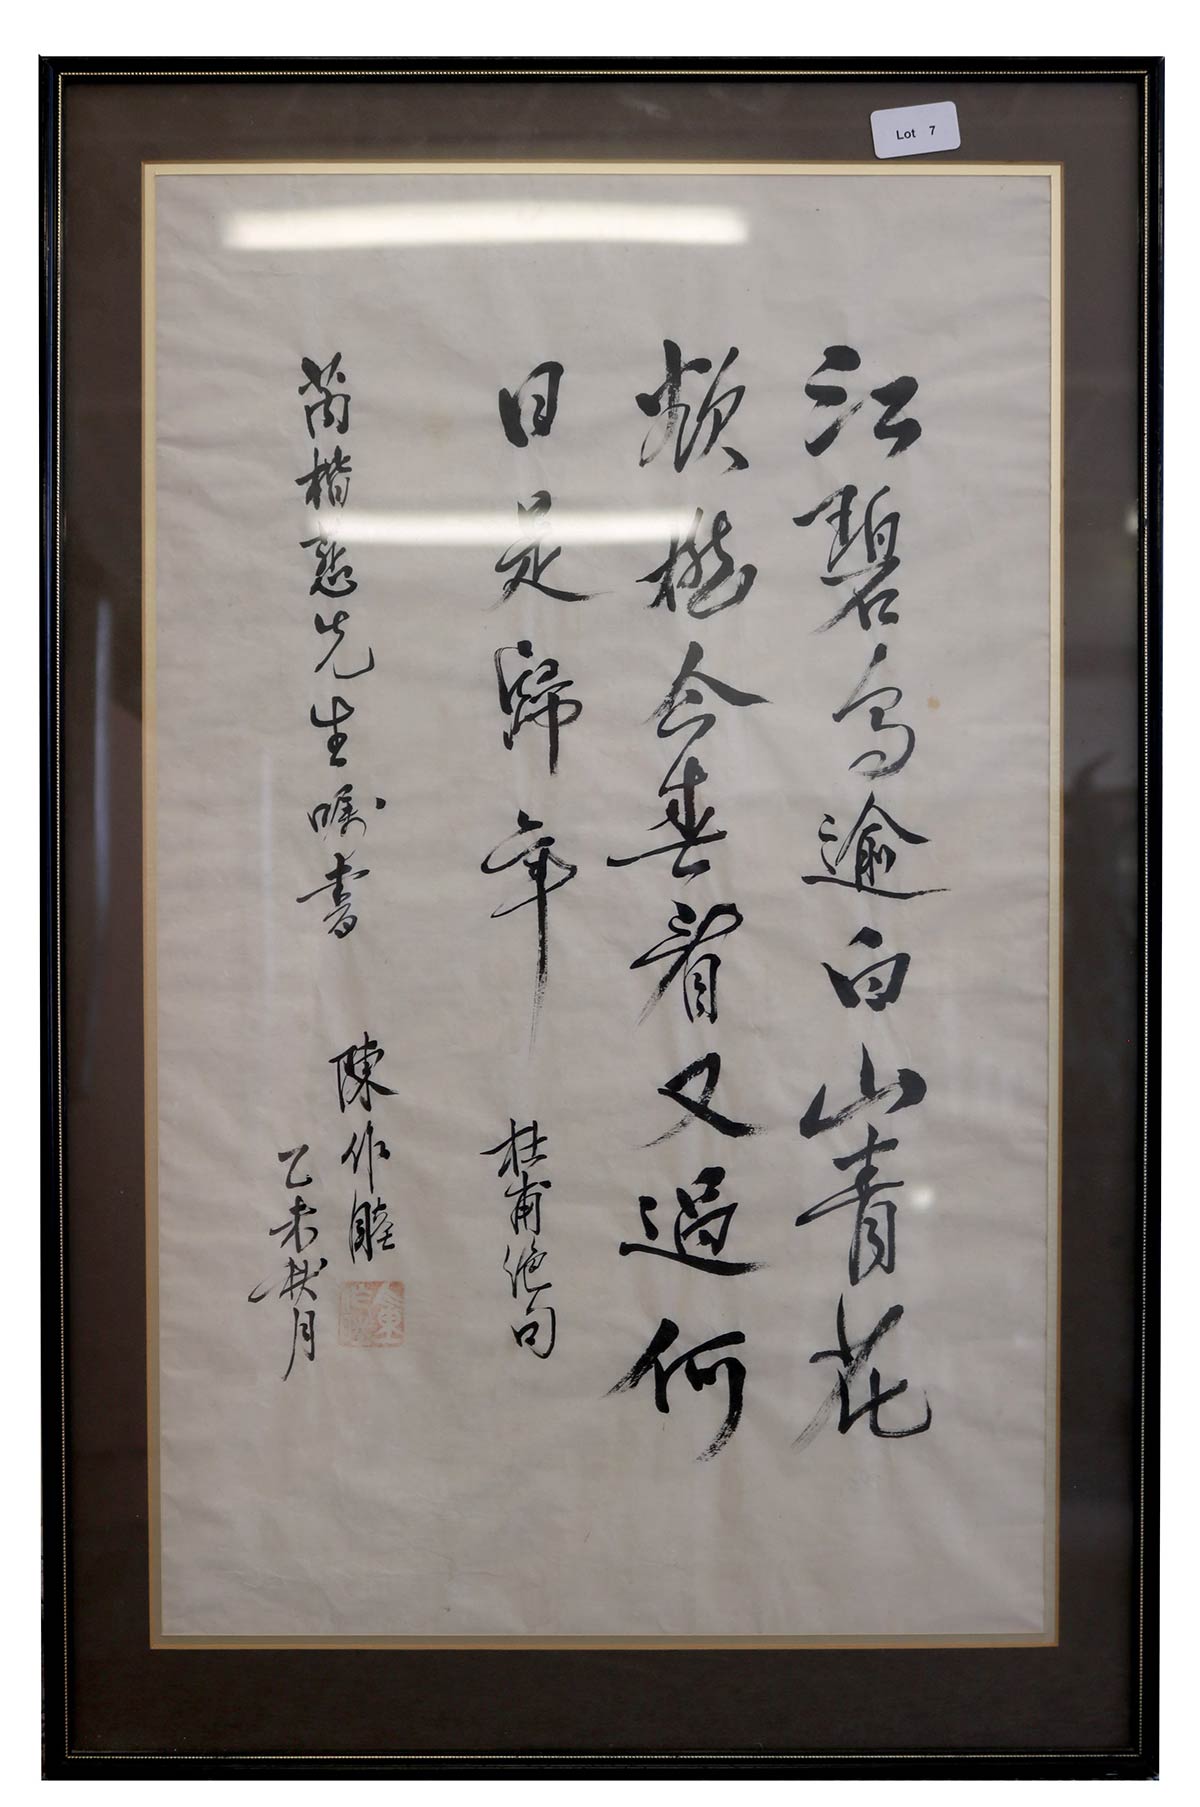 江碧鸟逾白山青花
欲然今春看又過何
日是歸年
杜甫絶句
楷慈先生嘱書
陳作睦
乙未秋月
Lot 7